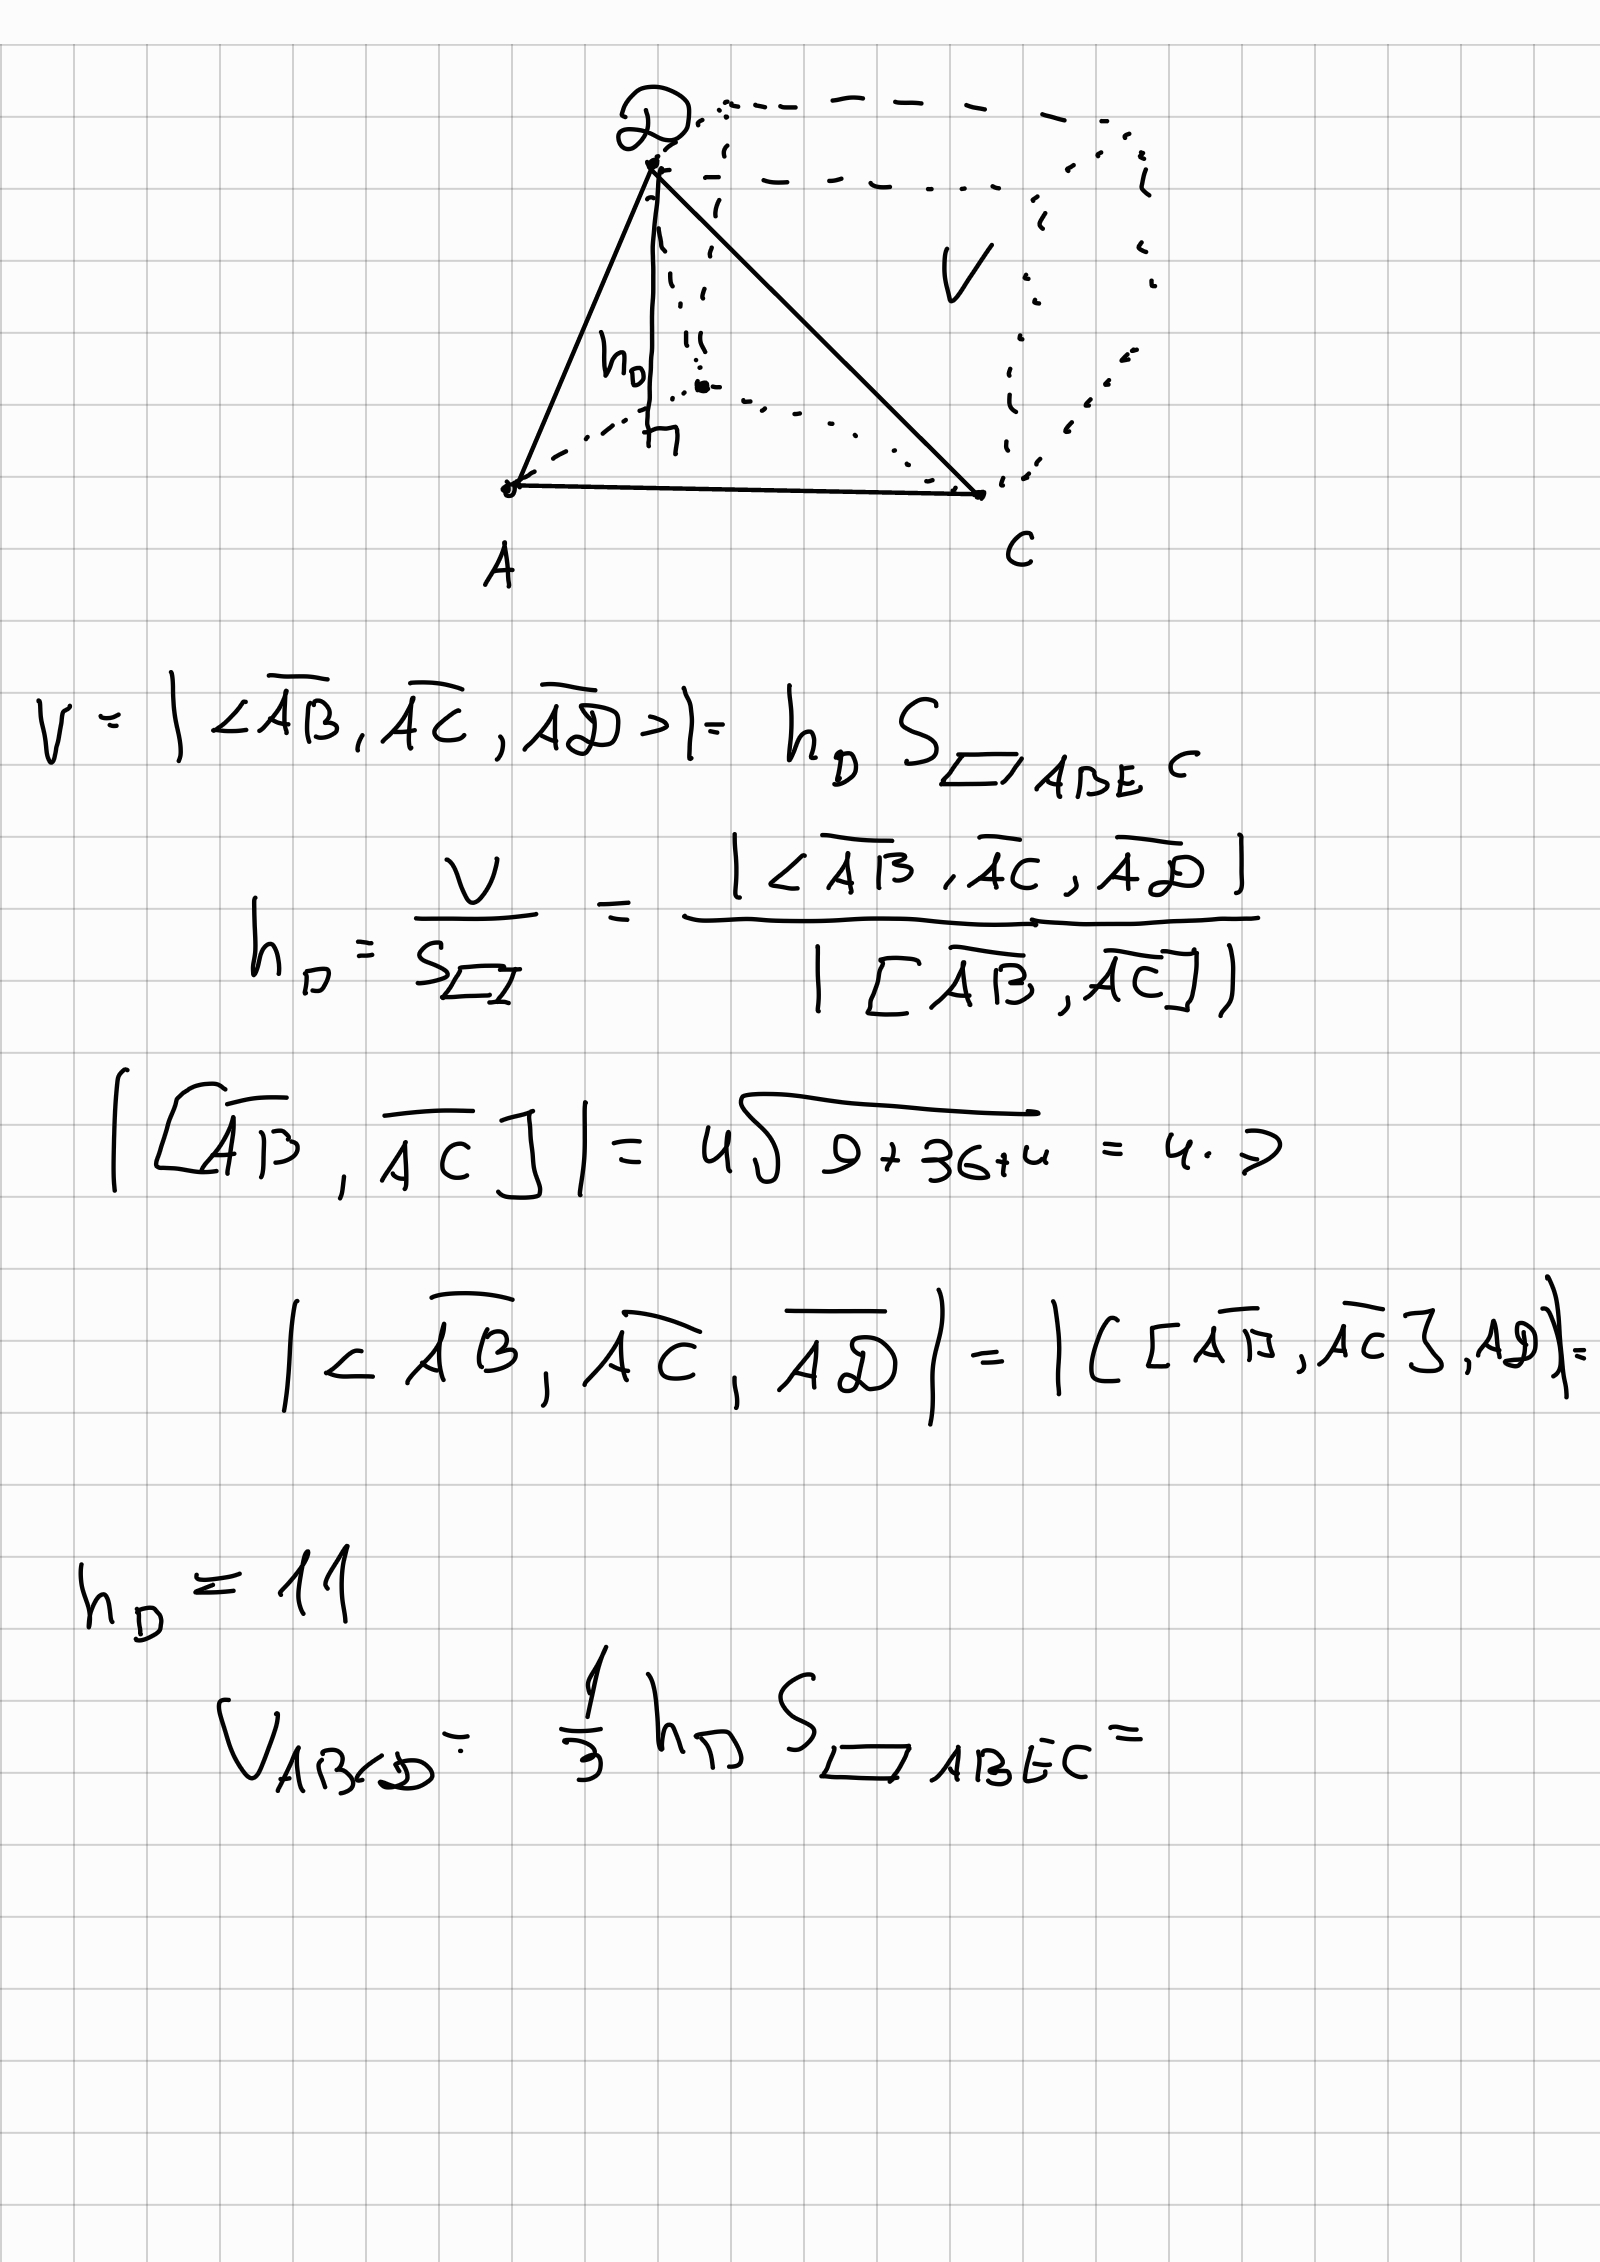 D
V
h_D
A
C
V = | <\overline{AB}, \overline{AC}, \overline{AD}> | = h_D S_{▱ABEC}
h_D = \frac{V}{S_▱} = \frac{| <\overline{AB}, \overline{AC}, \overline{AD} |}{| [\overline{AB}, \overline{AC}] |}
| [\overline{AB}, \overline{AC}] | = 4\sqrt{9+36+4} = 4·7
| <\overline{AB}, \overline{AC}, \overline{AD} | = | ([\overline{AB}, \overline{AC}], AD) | =
h_D = 11
V_{ABCD} = \frac{1}{3} h_D S_{▱ABEC} =